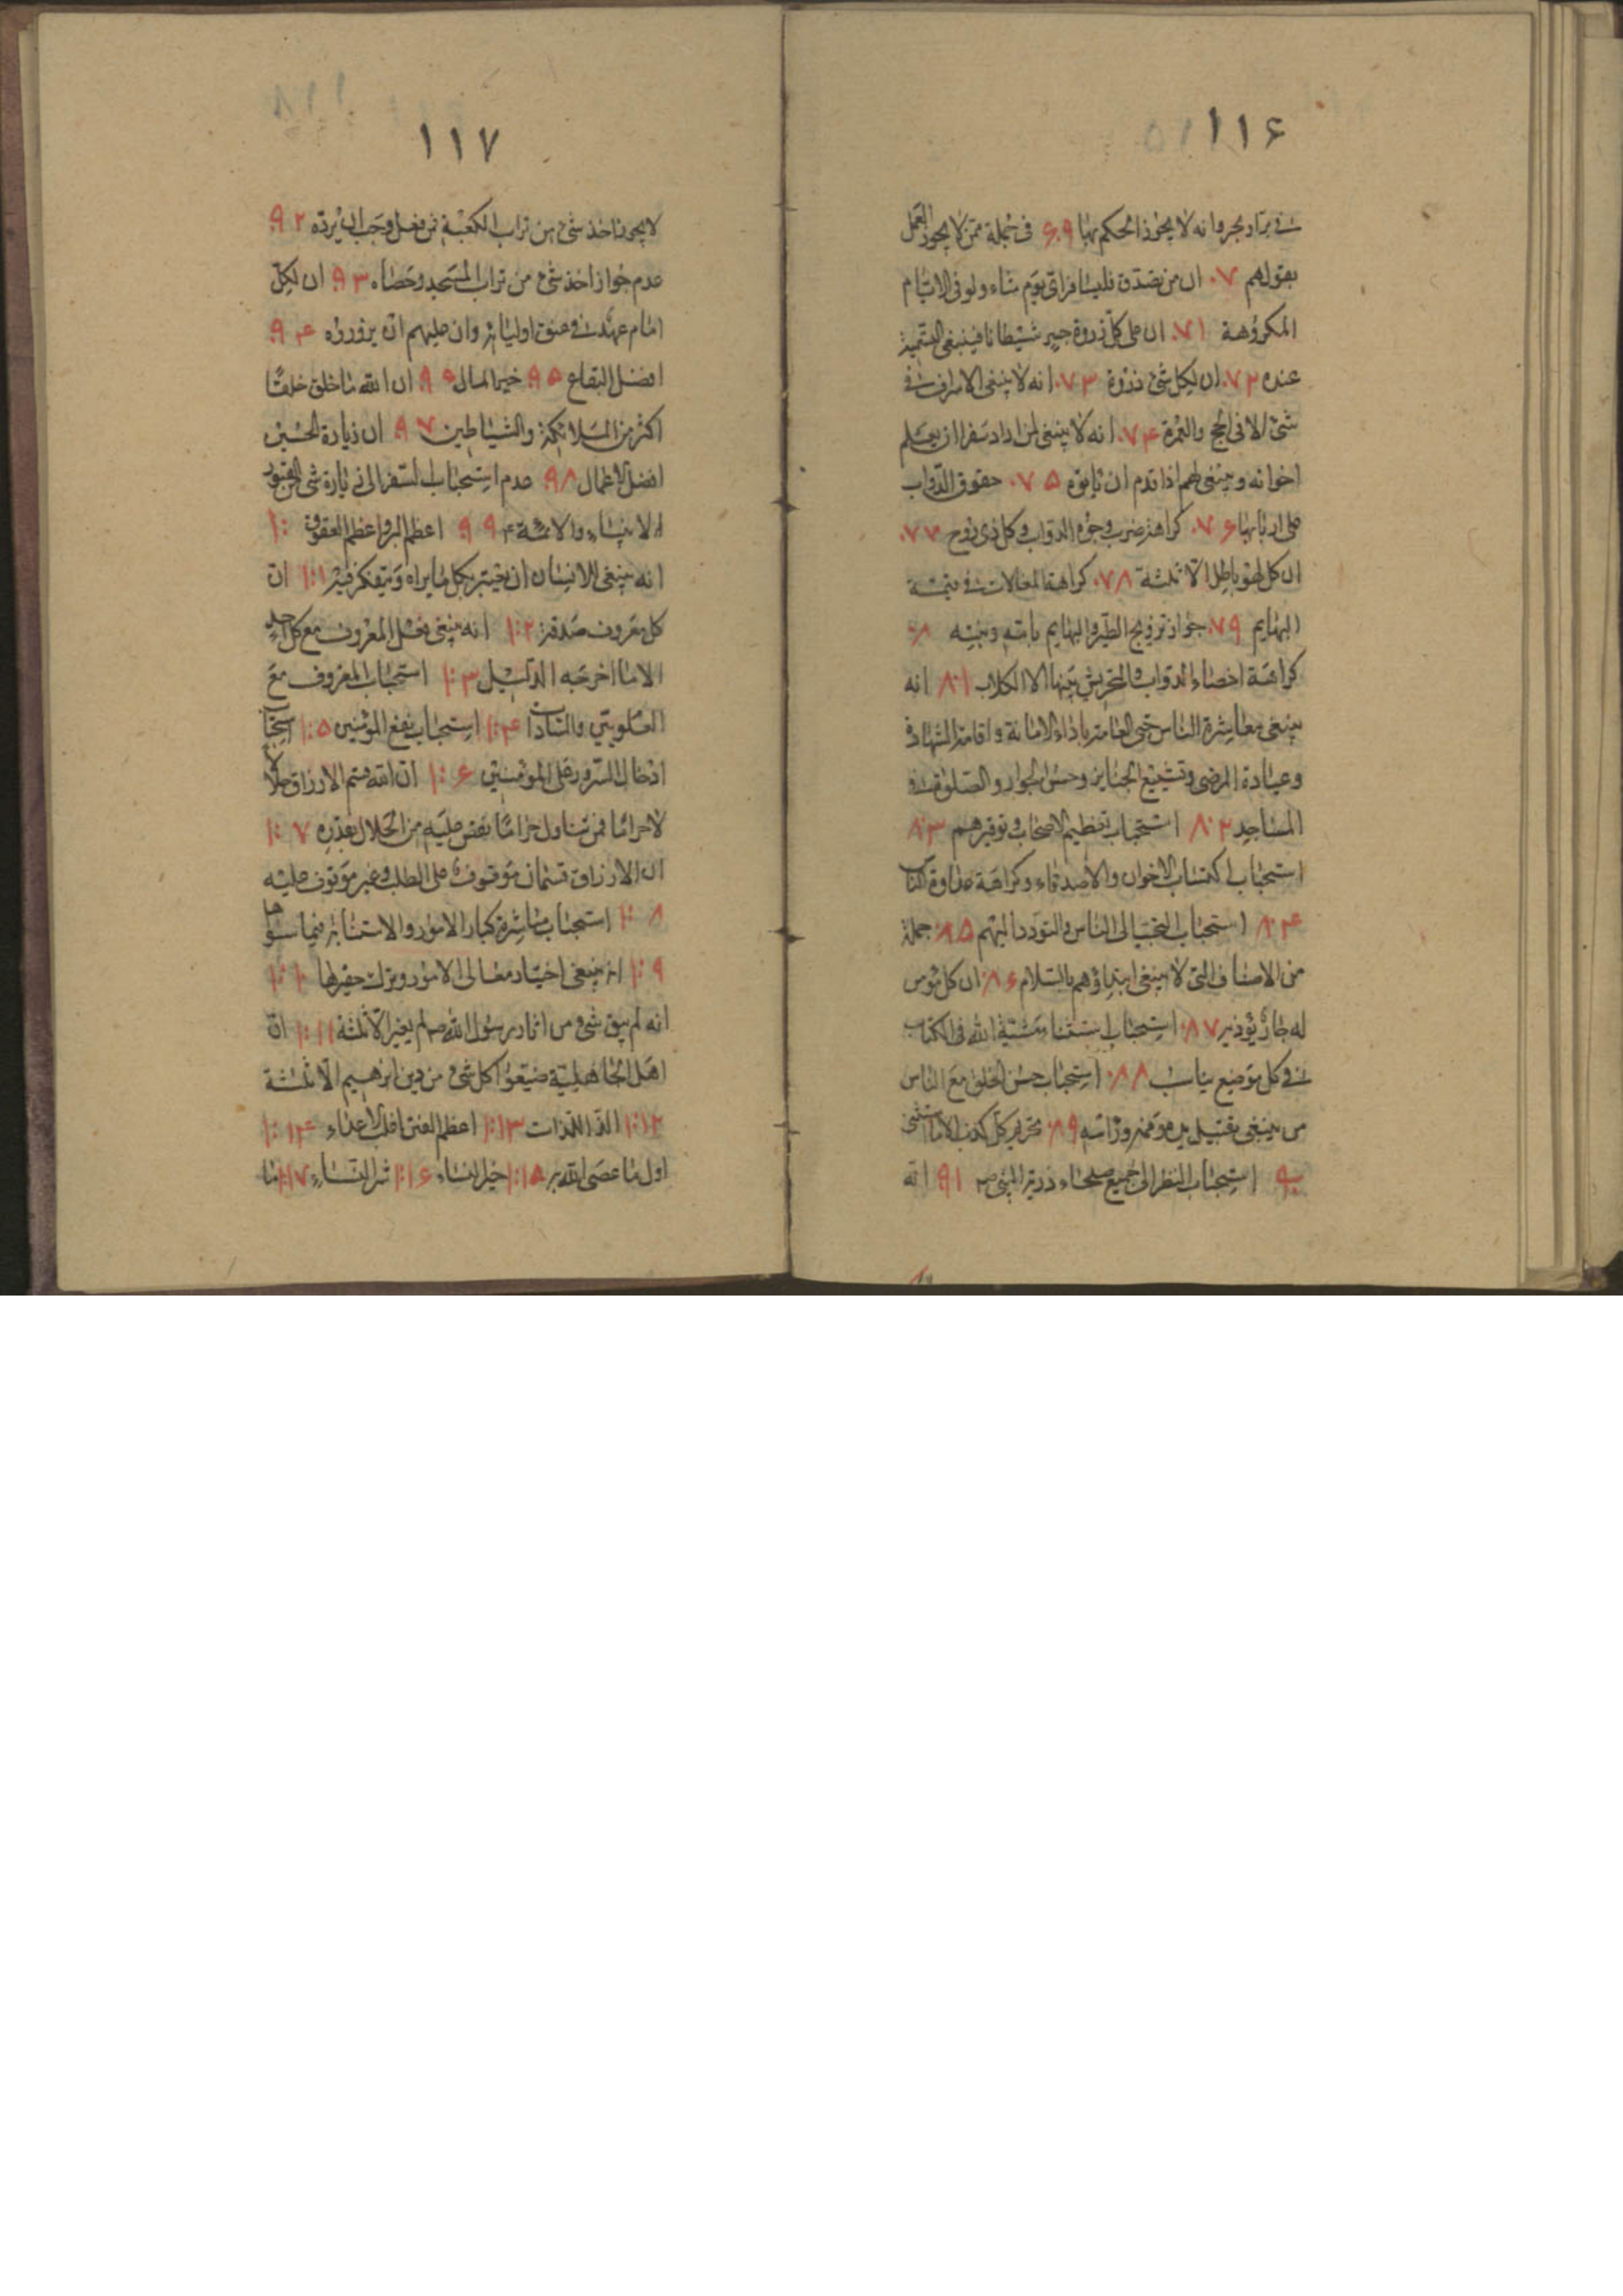 ١١۶
في بر او بحر وانه لا يجوز الحكم بها ۶٩ في جملة ممن لا يجوز العمل
بقولهم ٧٠ ان من تصدق فليسافر اي يوم شاء ولو في الايام
المكروهة ٧١ ان على كل ذروة جسر شيطانا فينبغي التسمية
عنده ٧٢ ان لكل شئ ذروة ٧٣ انه لا ينبغي الاسراف في
شئ الا في الحج والعمرة ٧۴ انه لا ينبغي لمن اراد سفرا ان يعلم
اخوانه وينبغي لهم اذا قدم ان ياتوه ٧۵ حقوق الدواب
على اربابها ٧۶ كراهة ضرب وجوه الدواب وكل ذي روح ٧٧
ان كل لهو باطل الا ثلثة ٧٨ كراهة المغالات في قيمة
البهايم ٧٩ جواز تزويج الطير والبهايم بامه وبنته ٨٠
كراهة اخصاء الدواب والتحريش بينها الا الكلاب ٨١ انه
ينبغي معاشرة الناس حتى العامة باداء الامانة واقامة الشهادة
وعيادة المرضى وتشييع الجنايز وحسن الجوار والصلوة في
المساجد ٨٢ استحباب تعظيم الاصحاب وتوقيرهم ٨٣
استحباب اكتساب الاخوان والاصدقاء وكراهة عداوة الناس
٨۴ استحباب التحبب الى الناس والتودد اليهم ٨۵ جملة
من الاصناف التي لا ينبغي ابتداؤهم بالسلام ٨۶ ان كل مؤمن
له جار يؤذيه ٨٧ استحباب استثناء مشية الله في الكتاب
في كل موضع يناسب ٨٨ استحباب حسن الخلق مع الناس
من ينبغي تقبيل يده وفمه وراسه ٨٩ تحريم كل كذب الا ما استثنى
٩٠ استحباب النظر الى جميع صلحاء ذرية النبي ص ٩١ انه
١١٧
لا يجوز اخذ شئ من تراب الكعبة فمن فعل وجب ان يرده ٩٢
عدم جواز اخذ شئ من تراب المسجد وحصاه ٩٣ ان لكل
امام عهدا في عنق اوليائه وان عليهم ان يزوروه ٩۴
افضل البقاع ٩۵ خير المال ٩۶ ان الله ما خلق خلقا
اكثر من الملائكة والشياطين ٩٧ ان زيارة الحسين
افضل الاعمال ٩٨ عدم استحباب السفر الى زيارة شئ من القبور
الا الانبياء والائمة ع ٩٩ اعظم البر واعظم العقوق ١٠٠
انه ينبغي للانسان ان يعتبر بكل ما يراه ويتفكر فيه ١٠١ ان
كل معروف صدقة ١٠٢ انه ينبغي فعل المعروف مع كل احد
الا ما اخرجه الدليل ١٠٣ استحباب المعروف مع
العلويين والسادات ١٠۴ استحباب نفع المؤمنين ١٠۵ استحباب
ادخال السرور على المؤمنين ١٠۶ ان الله قسم الارزاق حلالا
لا حراما فمن تناول حراما نقص عليه من الحلال بقدره ١٠٧
ان الارزاق قسمان موقوف على الطلب وغير موقوف عليه
١٠٨ استحباب مباشرة كبار الامور والاستنابة فيما سواها
١٠٩ انه ينبغي اختيار معالى الامور وترك حقيرها ١١٠
انه لم يبق شئ من اثار رسول الله ص لم يغير الا ثلثة ١١١ ان
اهل الجاهلية ضيعوا كل شئ من دين ابرهيم الا ثلثة
١١٢ الذ اللذات ١١٣ اعظم الفتن اقلب الاعداء ١١۴
اول ما عصى الله به ١١۵ خير النساء ١١۶ شر النساء ١١٧ ما